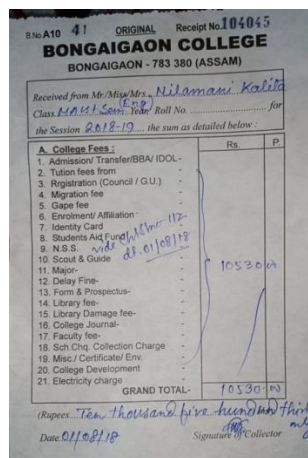 B.No. A10 41 ORIGINAL Receipt No. 104045
BONGAIGAON COLLEGE
BONGAIGAON - 783 380 (ASSAM)
Received from Mr./Miss/Mrs. Nilamani Kalita
(Eng)
Class. MA 1st Sem Year/ Roll No. for
the Session 2018-19 the sum as detailed below :
A. College Fees : Rs. P
1. Admission/ Transfer/BBA/ IDOL-
2. Tution fees from -
3. Rrgistration (Council / G.U.) -
4. Migration fee -
5. Gape fee -
6. Enrolment/ Affiliation -
7. Identity Card -
8. Students Aid Fund
9. N.S.S. vide 112
10. Scout & Guide dt. 01/08/18
11. Major- 10530
12. Delay Fine-
13. Form & Prospectus-
14. Library fee-
15. Library Damage fee-
16. College Journal-
17. Faculty fee-
18. Sch Chq. Collection Charge -
19. Misc./ Certificate/ Env. -
20. College Development -
21. Electricity charge -
GRAND TOTAL- 10530
(Rupees Ten thousand five hundred thirty only
Date 01/08/18 Signature of Collector